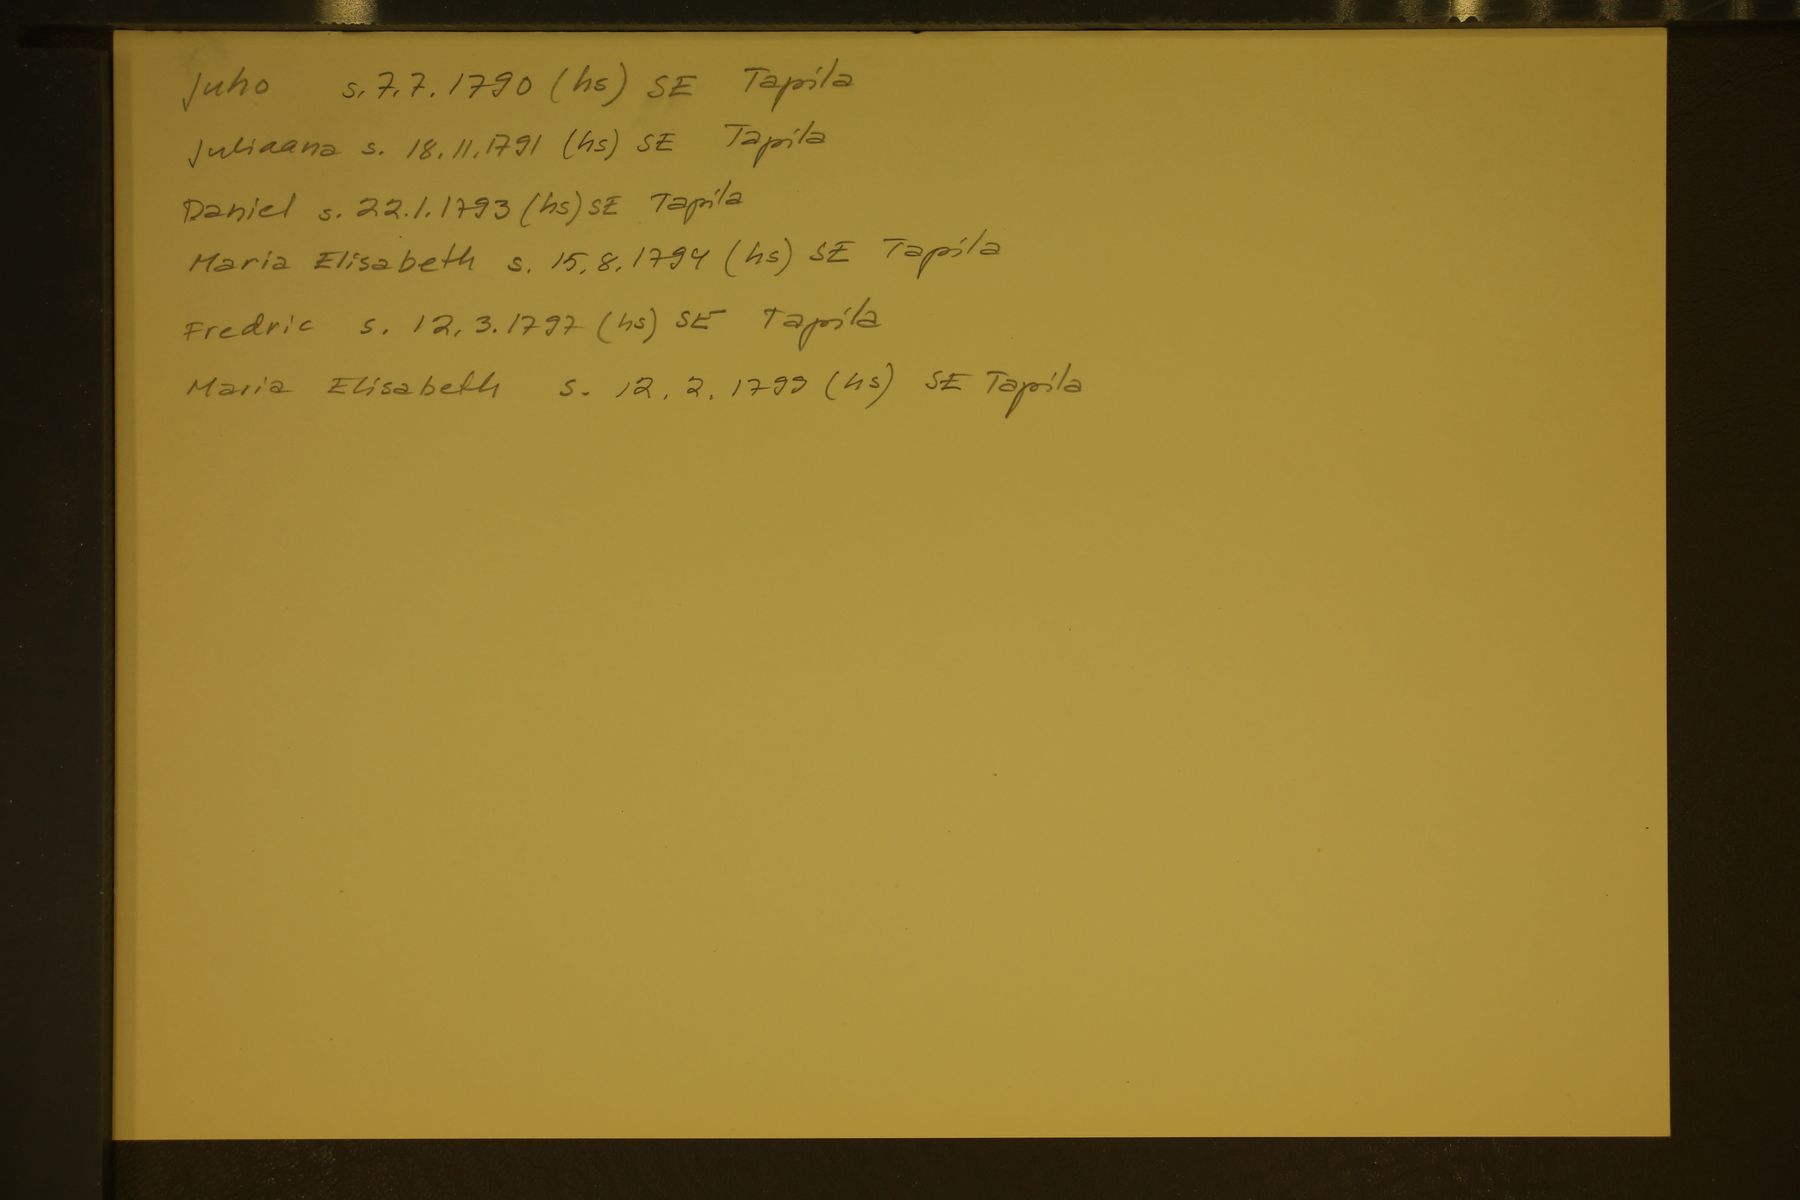 Juho s. 7.7.1790 (hs) SE Tapila
Juliaana s. 18.11.1791 (hs) SE Tapila
Daniel s. 22.1.1793 (hs) SE Tapila
Maria Elisabeth s. 15.8.1794 (hs) SE Tapila
Fredric s. 12.3.1797 (hs) SE Tapila
Maria Elisabeth s. 12.2.1799 (hs) SE Tapila